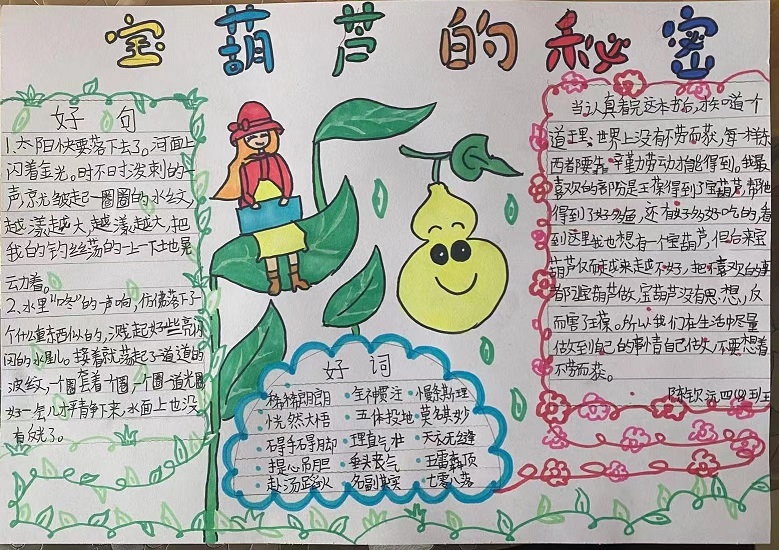 宝葫芦的秘密
好句
1.太阳快要落下去了。河面上
闪着金光。时不时泼刺的一
声,就皱起一圈圈的水纹,
越漾越大,越漾越大,把
我的钓丝荡的一上一下地晃
动着。
2.水里“咚”的一声响,仿佛落下了
个什么重东西似的,溅起好些亮闪
闪的水剧。接着就荡起了一道道的
波纹,一个圈套着一个圈,一个圈一道光圈
好一会儿才平静下来,水面上也没
有
了。
好词
仔神贯注 慢条斯理
恍然大悟 五体投地 莫名其妙
碍手碍脚 理直气壮 天衣无缝
提心吊胆 垂头丧气 五雷轰顶
赴汤蹈火 名副其实 七零八落
当认真看完这本书后,我知道一个
道理:世界上没有不劳而获,每一样东
西都要靠辛勤劳动才能得到。我最
喜欢的部分是王葆得到了宝葫芦,帮他
得到了好多鱼,还有好多好吃的,看
到这里我也想有一个宝葫芦,但后来宝
葫芦仅而越来越不好,把不喜欢的事
都让宝葫芦做,宝葫芦没有思想,反
而害了王葆。所以我们在生活中尽量
做到自己的事情自己做,不要想着
不劳而获。